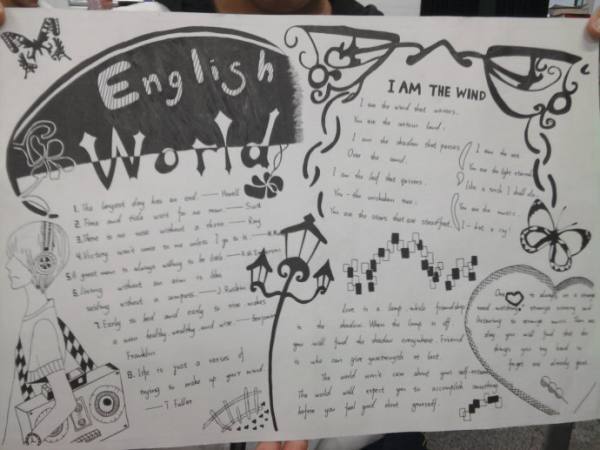 English
World
1. The longest day has an end. —— Howell
2. Time and tide wait for no man. —— Scott
3. There is no rose without a thorn. —— Ray
4. Victory won't come to me unless I go to it. ——
5. A great man is always willing to be little. ——
6. Living without an aim is like
sailing without a compass. —— J. Ruskin
7. Early to bed and early to rise makes
a man healthy, wealthy and wise. —— Benjamin
Franklin
8. Life is just a series of
trying to make up your mind
—— T Fuller
I AM THE WIND
I am the wind that wavers.
You are the certain land.
I am the shadow that passes
Over the sand.
I am the leaf that quivers.
You - the unshaken tree.
You are the stars that are steadfast.
I am the sea.
You are the light eternal
Like a torch I shall die
You are the music
I - but a cry!
Love is a lamp while friendship
is the shadow. When the lamp is off,
you will find the shadow everywhere. Friend
is who can give you strength at last.
The world won't care about your self-esteem.
The world will expect you to accomplish something
before you feel good about yourself.
is always on a strange
road watching strange scenery and
listening to strange music. Then one
day you will find that the
things you try hard to
forget are already gone.